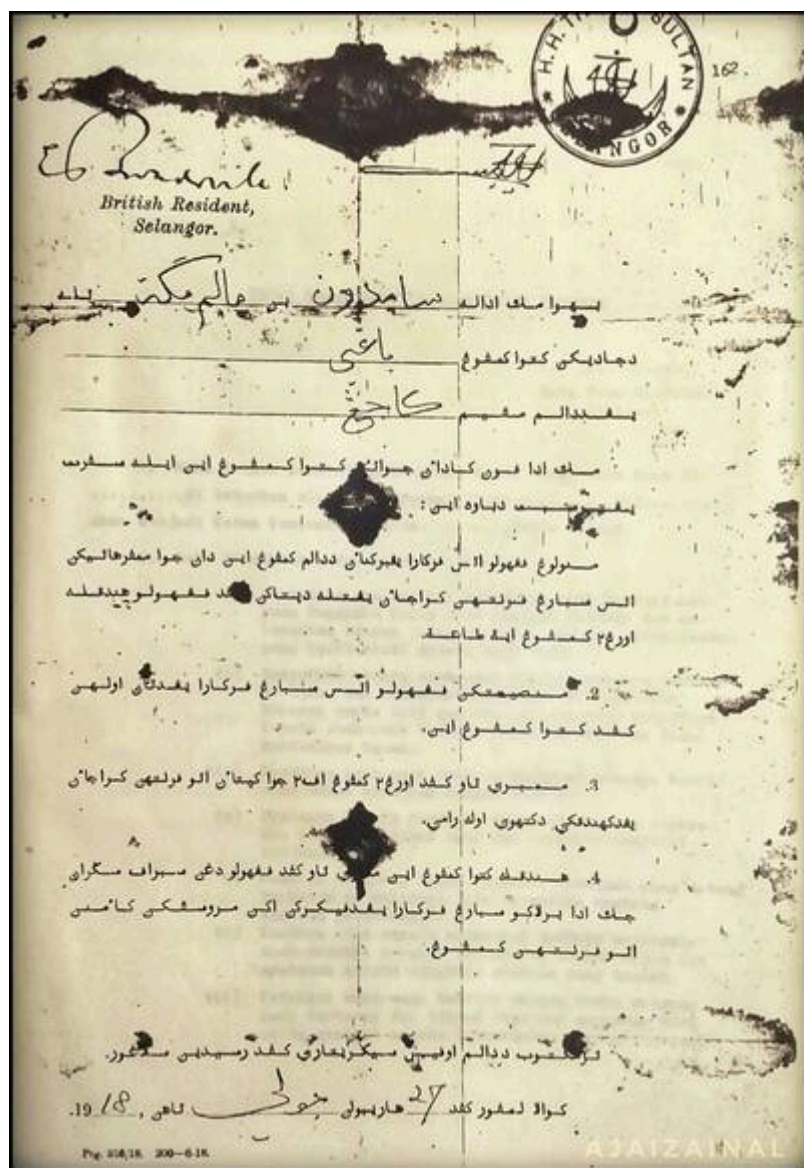 H.H. THE SULTAN
SELANGOR
162.
British Resident,
Selangor.
بهوا مك اداله سامدون بن حاليم مڬت تله
دجاديكن كتوا كمڤوڠ باڠي
يڠددالم مقيم كاجڠ
مك ادا ڤون كاداٴن جواتن كتوا كمڤوڠ اين ايله سڤرت
يڠترسبت دباوه اين :
منولوڠ ڤڠهولو اتس ڤركارا يڠبركناٴن ددالم كمڤوڠ اين دان جوا ممڤرهاتيكن
اتس سبارڠ ڤرنتهن كراجاٴن يڠتله دڽتاكن ڤڠهولو هندقله
اورڠ٢ كمڤوڠ ايت طاعة.
2. منصيحتكن ڤڠهولو اتس سبارڠ ڤركارا يڠدتاٴن اولهن
كڤد كتوا كمڤوڠ اين.
3. ممبري تاو كڤد اورڠ٢ كمڤوڠ اڤ٢ جوا كڽتاٴن اتو ڤرنتهن كراجاٴن
يڠدكهندقكن دكتهوي اوله رامي.
4. هندقله كتوا كمڤوڠ اين تاو كڤد ڤڠهولو دڠن سبراڤ سڬراڽ
جك ادا برلاكو سبارڠ ڤركارا يڠدفيكركن اكن مروسقكن كاٴمنن
اتو ڤرنتهن كمڤوڠ.
ترمكتوب ددالم اوفيس سيكريتاري كڤد رسيدين سلاڠور.
كوالا لمڤور كڤد 27 هاريبولن جولي تاهن 1918.
Prg. 356/18. 200—6-18.
AJAIZAINAL